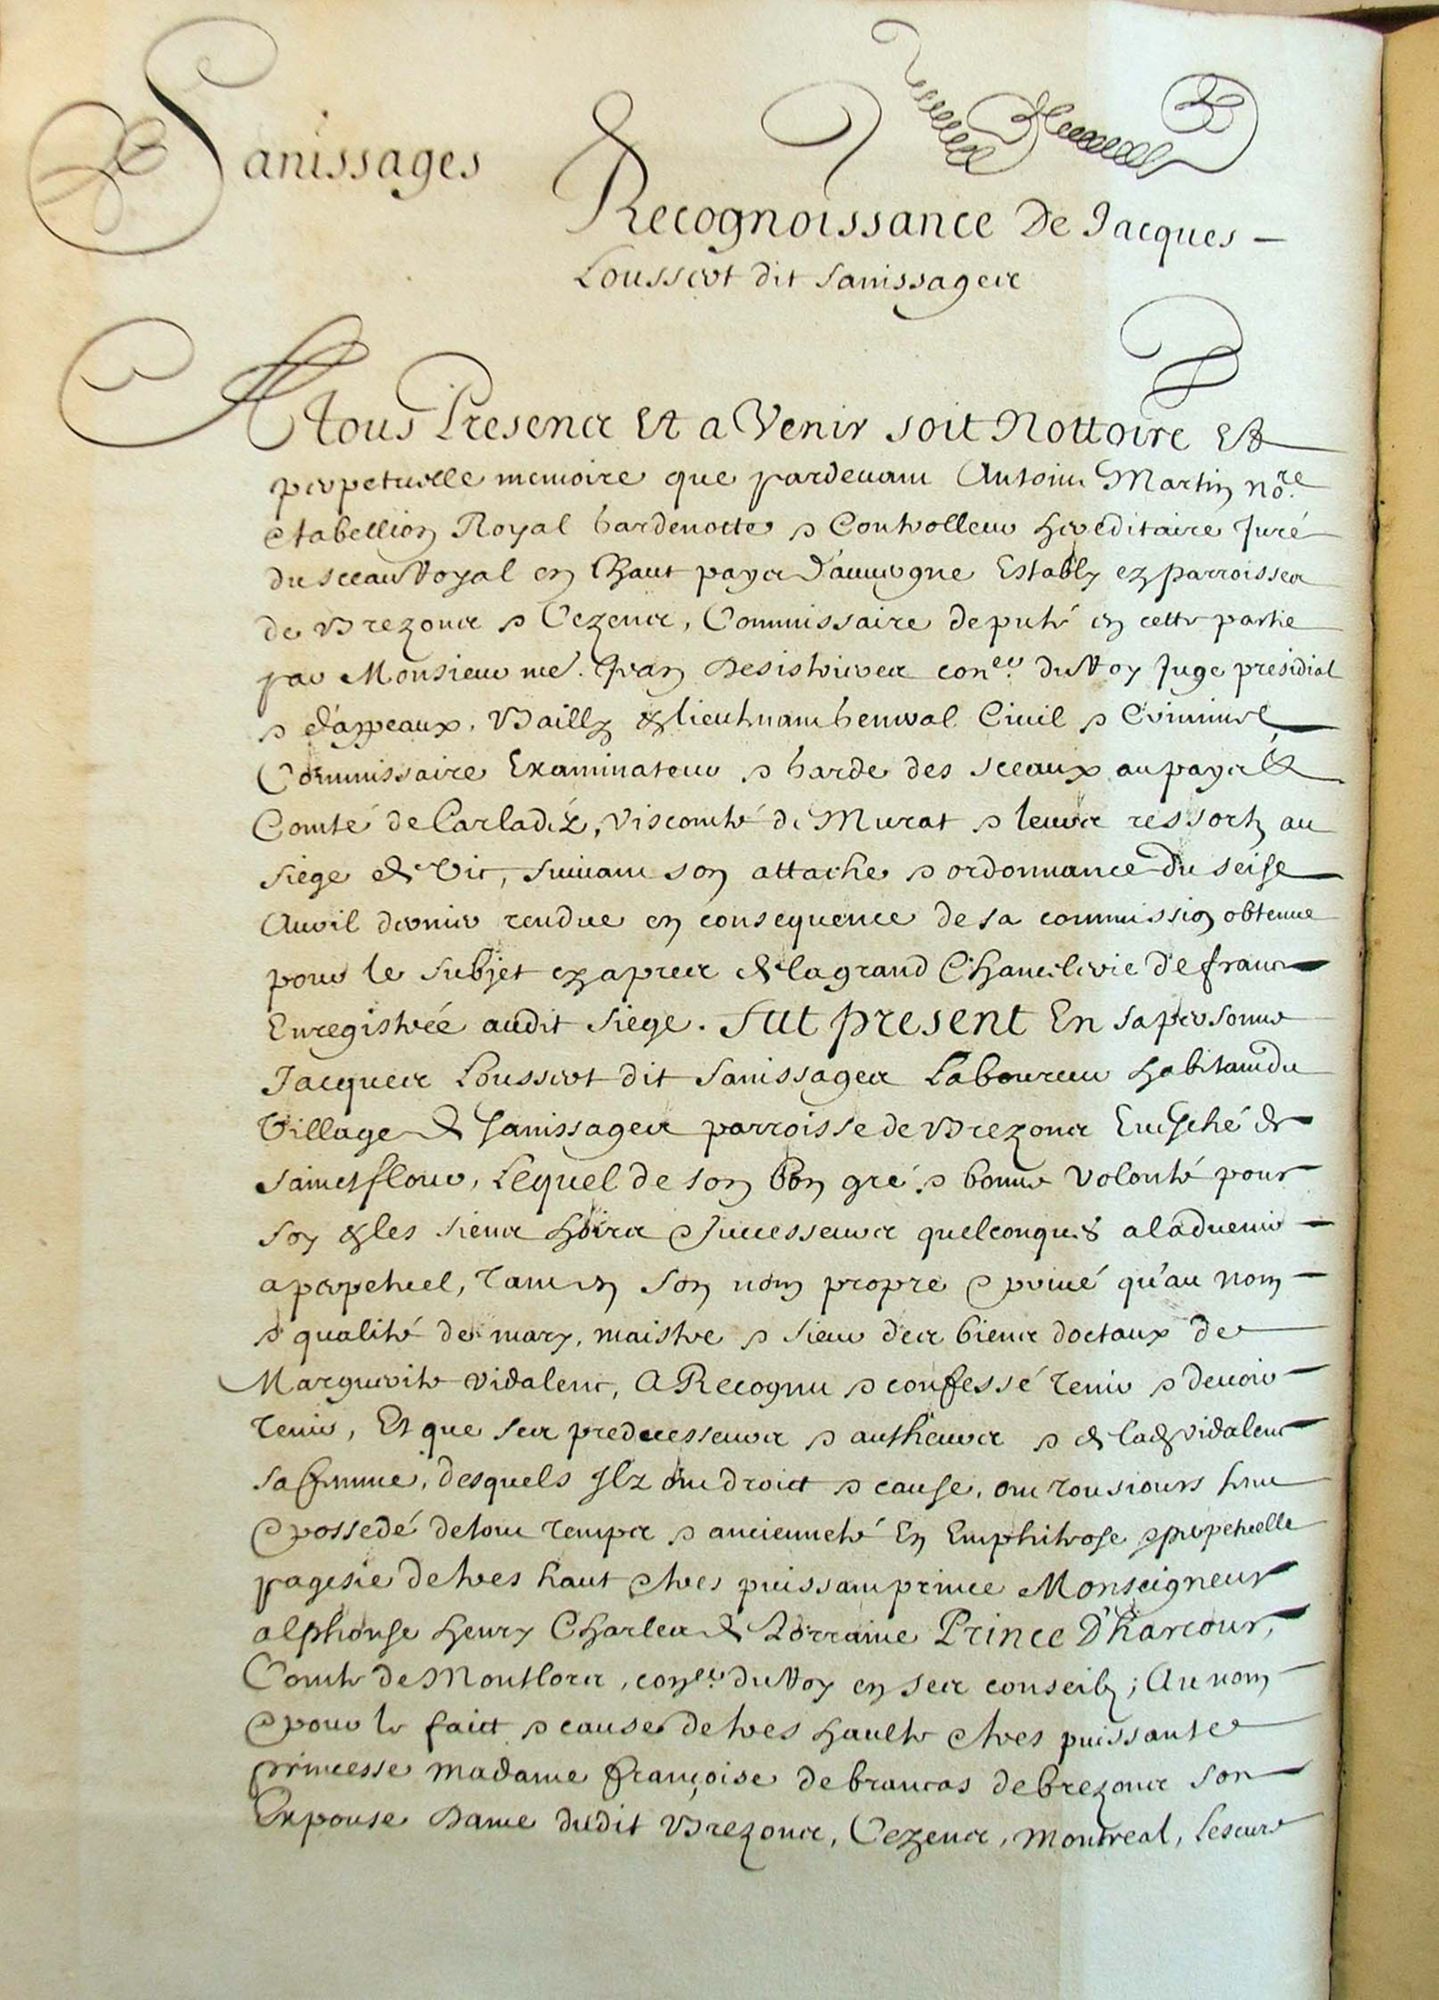 Sanissages
Recognoissance De Jacques
Loussert dit Sanissages
A tous Presens Et a Venir soit Nottoire Et
perpetuelle memoire que pardevant Antoine Martin no.re
et tabellion Royal hardenotte et Controlleur hereditaire Juré
du sceau Royal en haut payes d'auvergne Estably ez parroisses
de Brezons et Cezens, Commissaire deputé en cette partie
par Monsieur me. Jean Desistrieres con.er du Roy Juge presidial
et d'appeaux, Bailly & lieutenant general Civil et Criminel
Commissaire Examinateur et garde des sceaux au payes &
Comté de Carladéz, Viscomté de Murat et leurs ressortz au
siege de Vic, suivant son attache et ordonnance du seise
Avril dernier rendue en consequence de sa commission obtenue
pour le subjet ez apres de la grand Chancelerie de france
Enregistrée audit siege. Fut present En sa personne
Jacques Loussert dit Sanissages Laboureur habitant du
Village de Sanissages parroisse de Brezons Evesché de
Sainct flour, Lequel de son bon gré et bonne volonté pour
soy & les siens hoirs et successeurs quelconques a ladvenir
a perpetuel, tant en son nom propre et privé qu'au nom
et qualité de mary, maistre et sieur des biens doctaux de
Marguerite Vidalenc, A Recognu et confessé tenir et devoir
tenir, Et que ses predecesseurs et autheurs et de lad Vidalenc
sa femme, desquels Ilz ont droict et cause, ont tousiours tenu
et possedé de tout temps et ancienneté En Emphiteose et perpetuelle
pagesie de tres haut et tres puissant prince Monseigneur
alphonse henry Charles de Lorraine Prince D'harcour,
Comte de Montlors, con.er du Roy en ses conseilz; Au nom
et pour le faict et cause de tres haulte et tres puissante
princesse madame françoise de brancas de brezons son
Expouse Dame dudit Brezons, Cezens, Montreal, Lescure